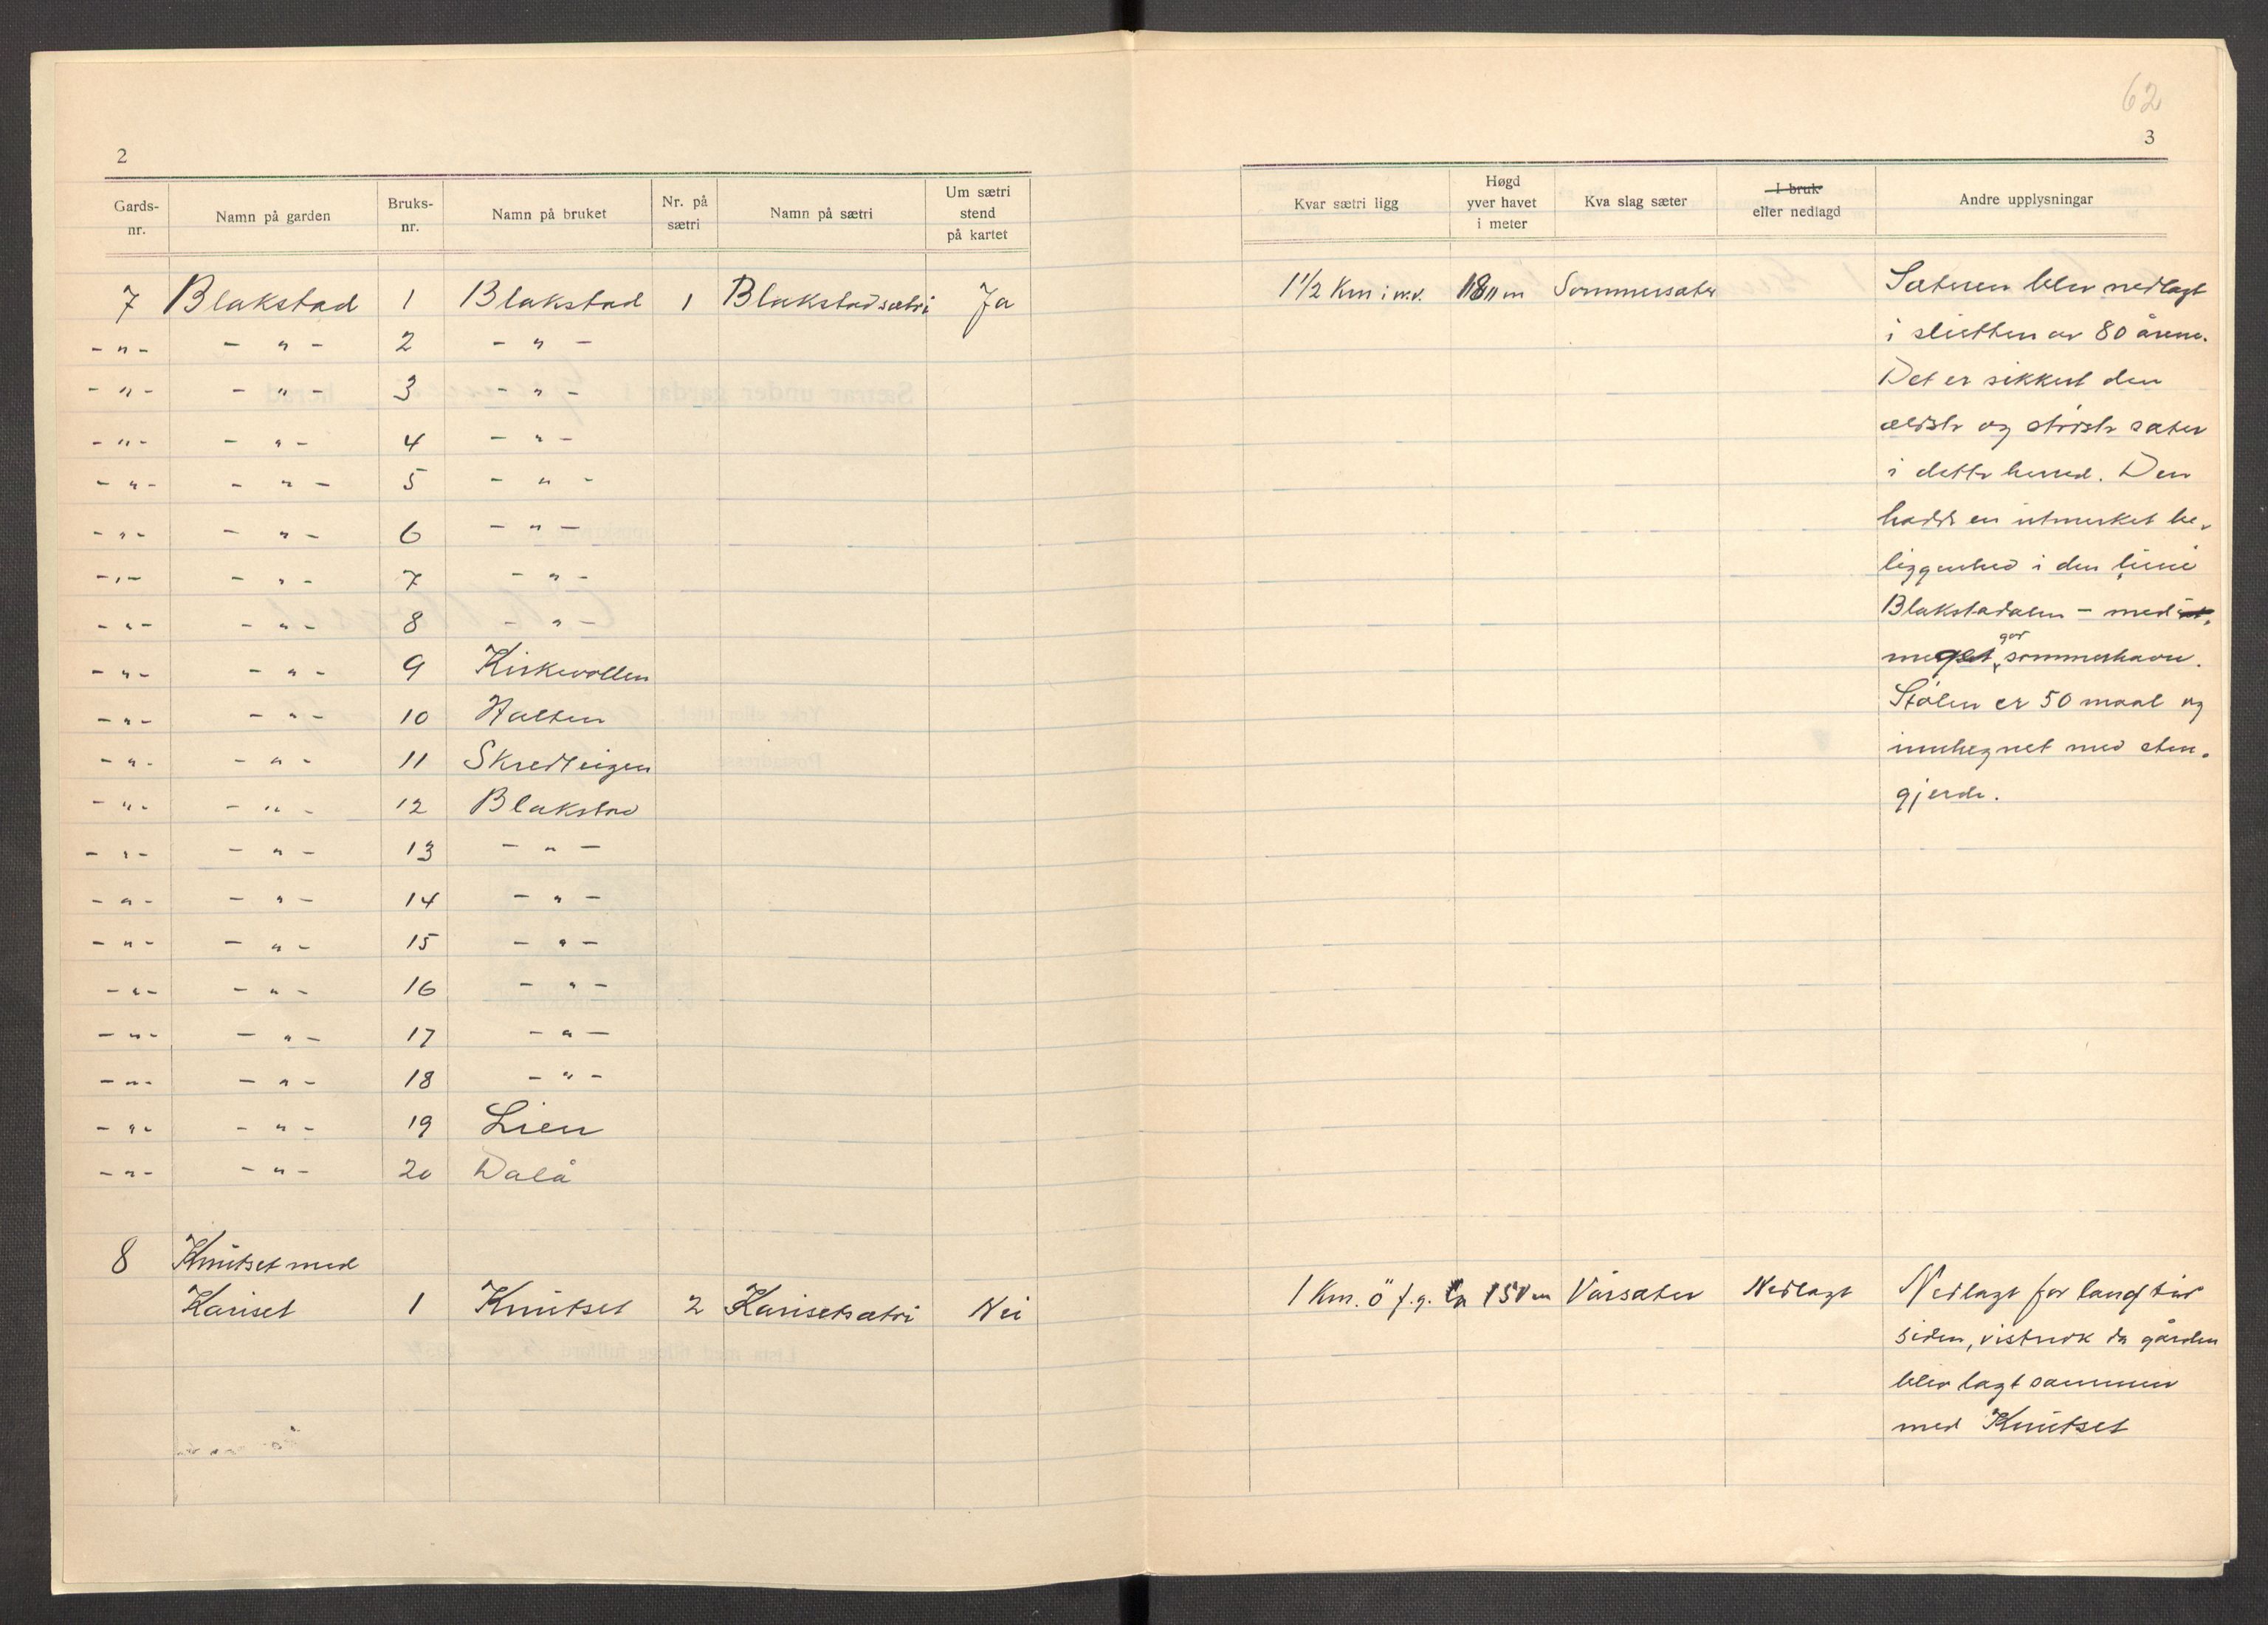 62
2
3
Gards-nr. Namn på garden Bruks-nr. Namn på bruket Nr. på sætri Namn på sætri Um sætri stend på kartet
Kvar sætri ligg Høgd yver havet i meter Kva slag sæter I bruk eller nedlagd Andre upplysningar
7 Blakstad 1 Blakstad 1 Blakstadsætri Ja
- " - - " - 2 - " -
- " - - " - 3 - " -
- " - - " - 4 - " -
- " - - " - 5 - " -
- " - - " - 6 - " -
- " - - " - 7 - " -
- " - - " - 8 - " -
- " - - " - 9 Kirkevollen
- " - - " - 10 Halten
- " - - " - 11 Skredteigen
- " - - " - 12 Blakstad
- " - - " - 13 - " -
- " - - " - 14 - " -
- " - - " - 15 - " -
- " - - " - 16 - " -
- " - - " - 17 - " -
- " - - " - 18 - " -
- " - - " - 19 Lien
- " - - " - 20 Dalå
8 Knutset med
Kariset 1 Knutset 2 Karisetsætri Nei
1 1/2 Km i n.v. Sommersæter Sæteren blev nedlagt
i slutten av 80 årene.
Det er sikkert den
ældste og største sæter
i dette herred. Den
hadde en utmerket be-
liggenhed i den lune
Blakstadalen - med
meget god sommerhavn.
Stölen er 50 maal og
innhegnet med sten-
gjerde.
1 Km. ö f. g. ca 150 m Vårsæter Nedlagt Nedlagt for lang tid
siden, vistnok da gården
blev lagt sammen
med Knutset